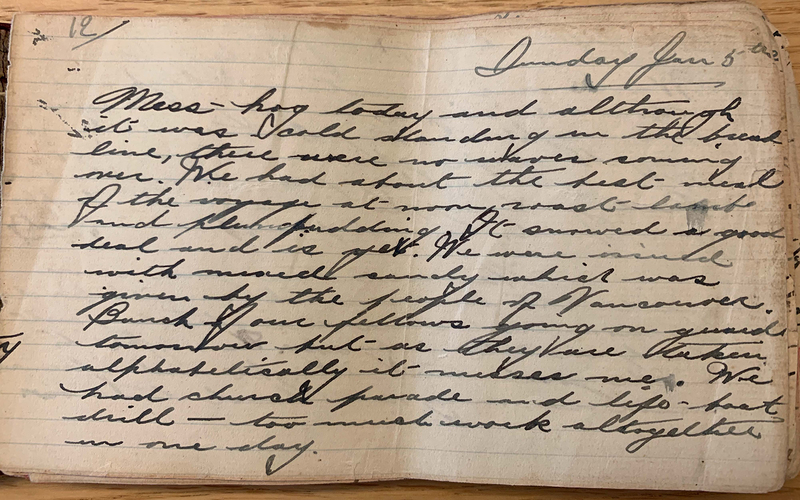 12
Sunday Jan 5th
Mess-hog today and although
it was cold standing in the bread
line, there were no waves coming
over. We had about the best meal
of the voyage at noon, roast lamb
and plum pudding. It snowed a good
deal and is yet. We were issued
with mixed candy which was
given by the people of Vancouver.
Bunch of our fellows going on guard
tomorrow but as they are taken
alphabetically it misses me. We
had church parade and life-boat
drill — too much work altogether
in one day.